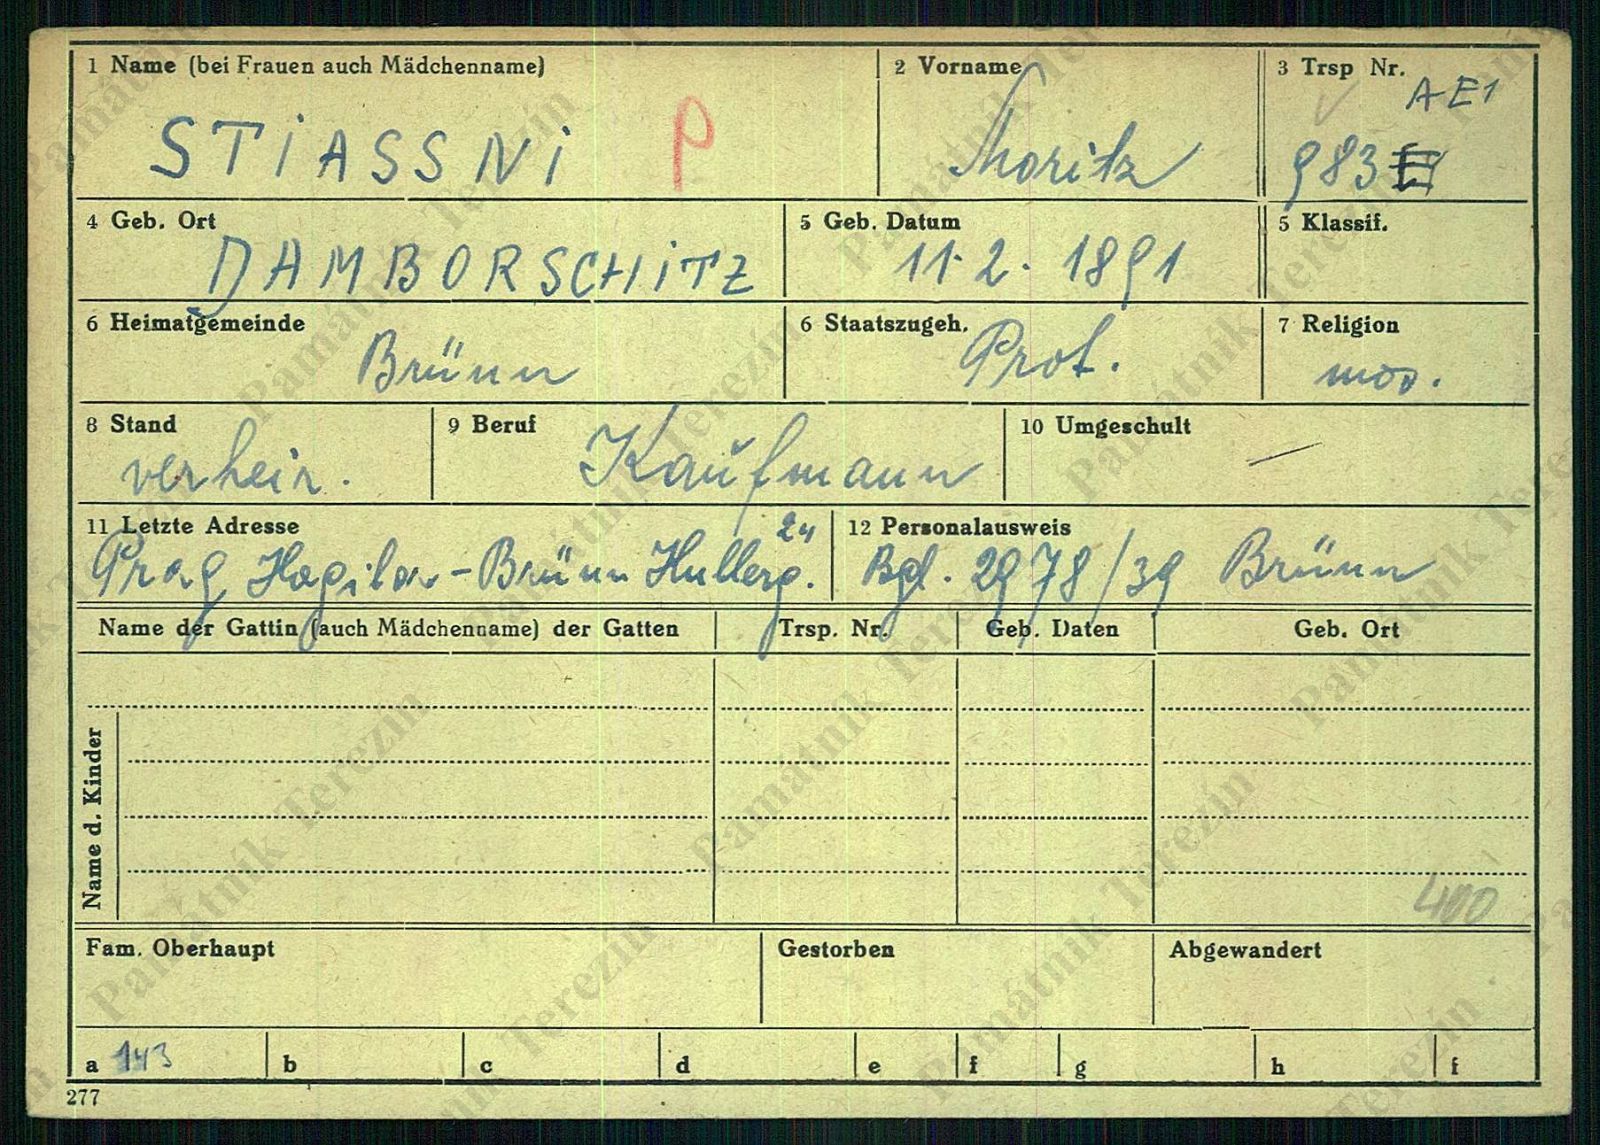 1 Name (bei Frauen auch Mädchenname)
STIASSNI P
2 Vorname
Moritz
3 Trsp Nr.
AE1
983
4 Geb. Ort
DAMBORSCHITZ
5 Geb. Datum
11.2.1891
5 Klassif.
6 Heimatgemeinde
Brünn
6 Staatszugeh.
Prot.
7 Religion
mos.
8 Stand
verheir.
9 Beruf
Kaufmann
10 Umgeschult
—
11 Letzte Adresse
24
Prag, - Brünn
12 Personalausweis
Bgl. 2978/39 Brünn
Name der Gattin (auch Mädchenname) der Gatten
Trsp. Nr.
Geb. Daten
Geb. Ort
Name d. Kinder
400
Fam. Oberhaupt
Gestorben
Abgewandert
a 143
b
c
d
e
f
g
h
i
277
Památník Terezín